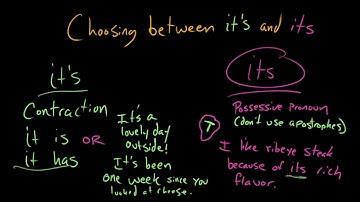 Choosing between it's and its
it's
Contraction
it is OR
it has
It's a
lovely day
outside!
It's been
one week since you
looked at choose.
its
Possessive Pronoun
(don't use apostrophes)
I like ribeye steak
because of its rich
flavor.